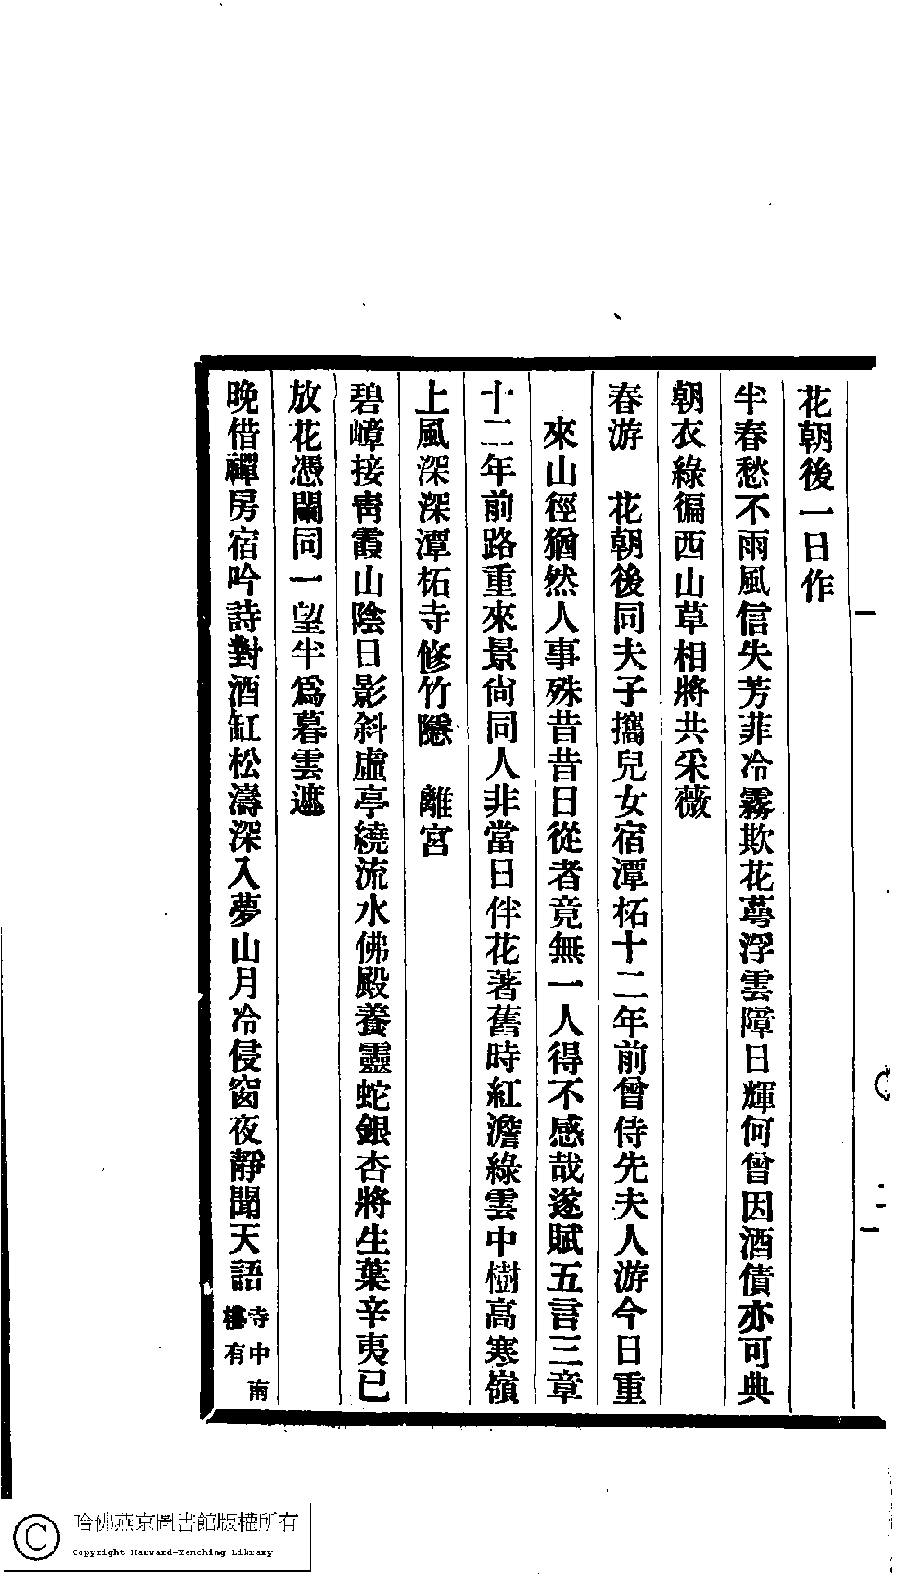 花朝後一日作
半春愁不雨風信失芳菲冷霧欺花蕚浮雲障日輝何曾因酒債亦可典
朝衣綠徧西山草相將共采薇
春游　花朝後同夫子攜兒女宿潭柘十二年前曾侍先夫人游今日重
來山徑猶然人事殊昔昔日從者竟無一人得不感哉遂賦五言三章
十二年前路重來景尙同人非當日伴花著舊時紅澹綠雲中樹高寒嶺
上風深深潭柘寺修竹隱　離宮
碧嶂接靑霞山陰日影斜虛亭繞流水佛殿養靈蛇銀杏將生葉辛夷已
放花憑闌同一望半爲暮雲遮
晚借禪房宿吟詩對酒缸松濤深入夢山月冷侵窗夜靜聞天語
寺中南
樓有
哈佛燕京圖書館版權所有
Copyright Harvard-Yenching Library